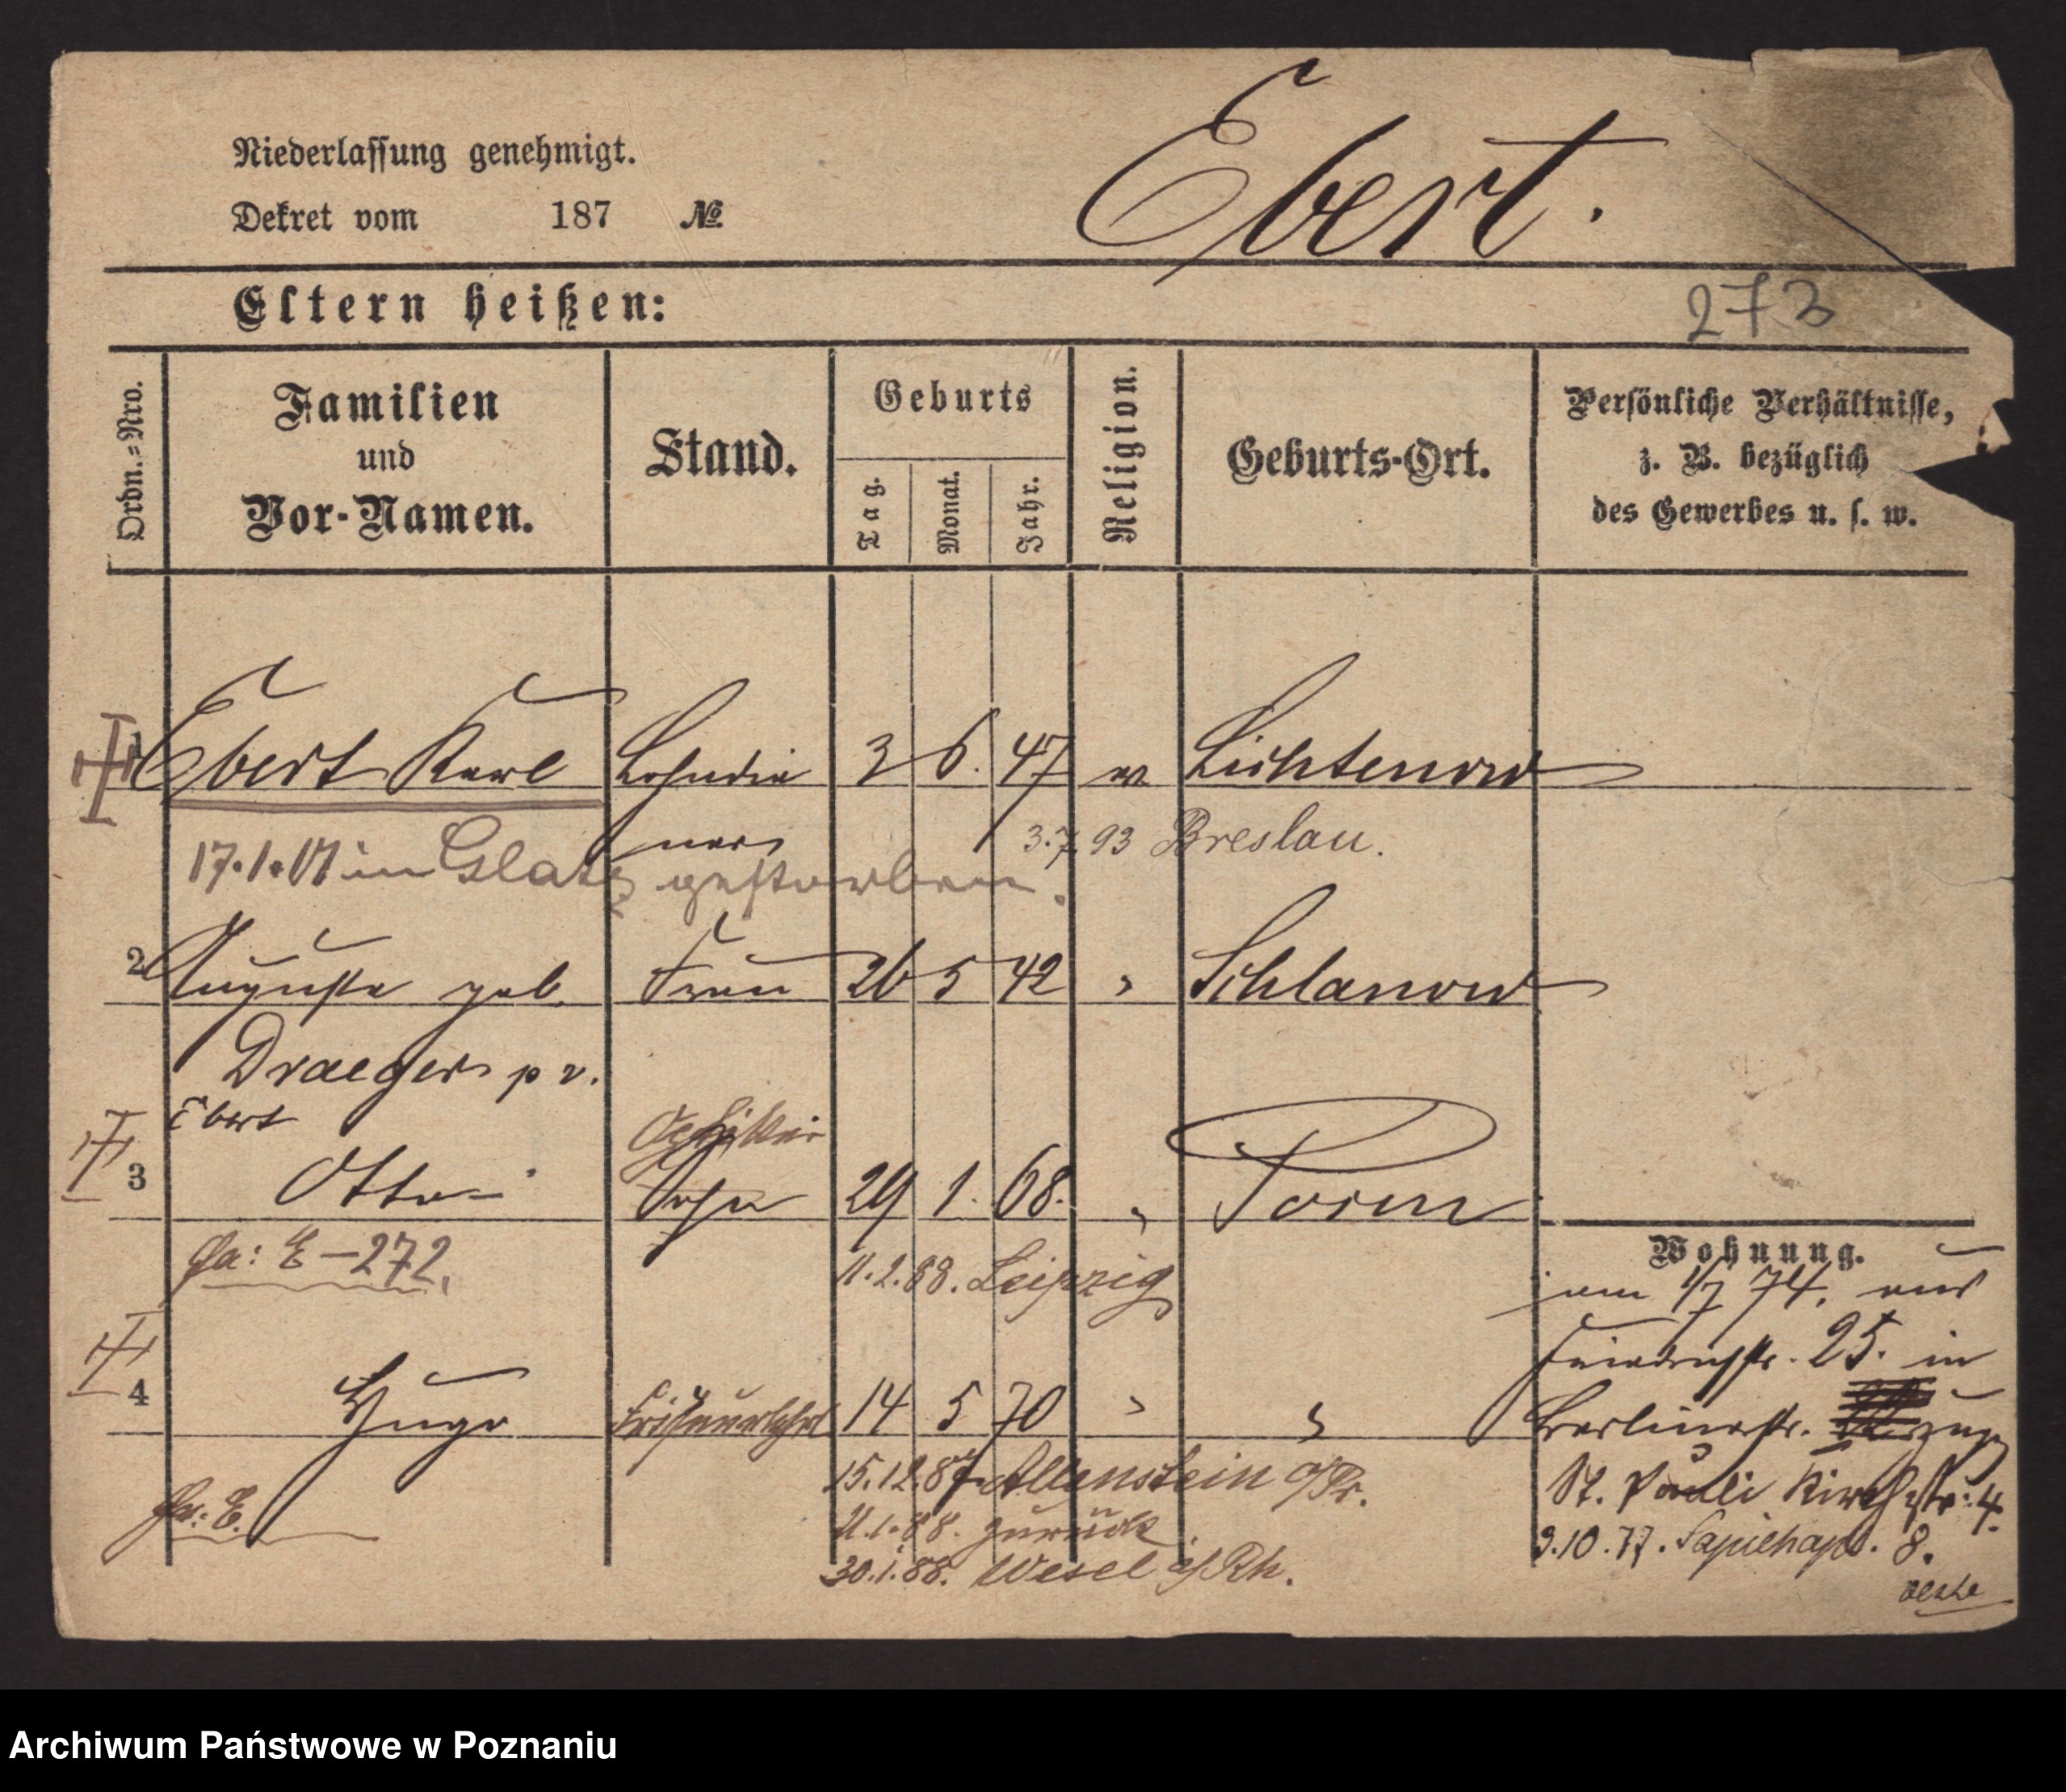 Niederlassung genehmigt.
Dekret vom 187 №
Ebert.
Eltern heißen:
273
Ordn.=Nro.
Familien
und
Vor-Namen.
Stand.
Geburts
Tag.
Monat.
Jahr.
Religion.
Geburts-Ort.
Persönliche Verhältnisse,
z. B. bezüglich
des Gewerbes u. s. w.
1 Ebert Karl Lohndie 3 6. 47 ev Lichtenow
ner 3.7.93 Breslau.
17.1.01 in Glatz gestorben.
2 Auguste geb. Frau 26 5 42 " Schlanow
Draeger p v.
Ebert
3 Otto Sohn 29 1. 68. " Posen
fa: E-272. 11.2.88. Leipzig
4 Hugo Friseurlehrl 14 5 70 " "
15.12.87 Allenstein o/Pr.
fa: E. 21.1.88. zurück
30.1.88. Wesel a/Rh.
Wohnung.
am 1/7 74. aus
Friedrichstr. 25. in
Berlinerstr. zugz
St. Pauli Kirchstr: 4.
9.10.77. Sapiehapl. 8.
Archiwum Państwowe w Poznaniu